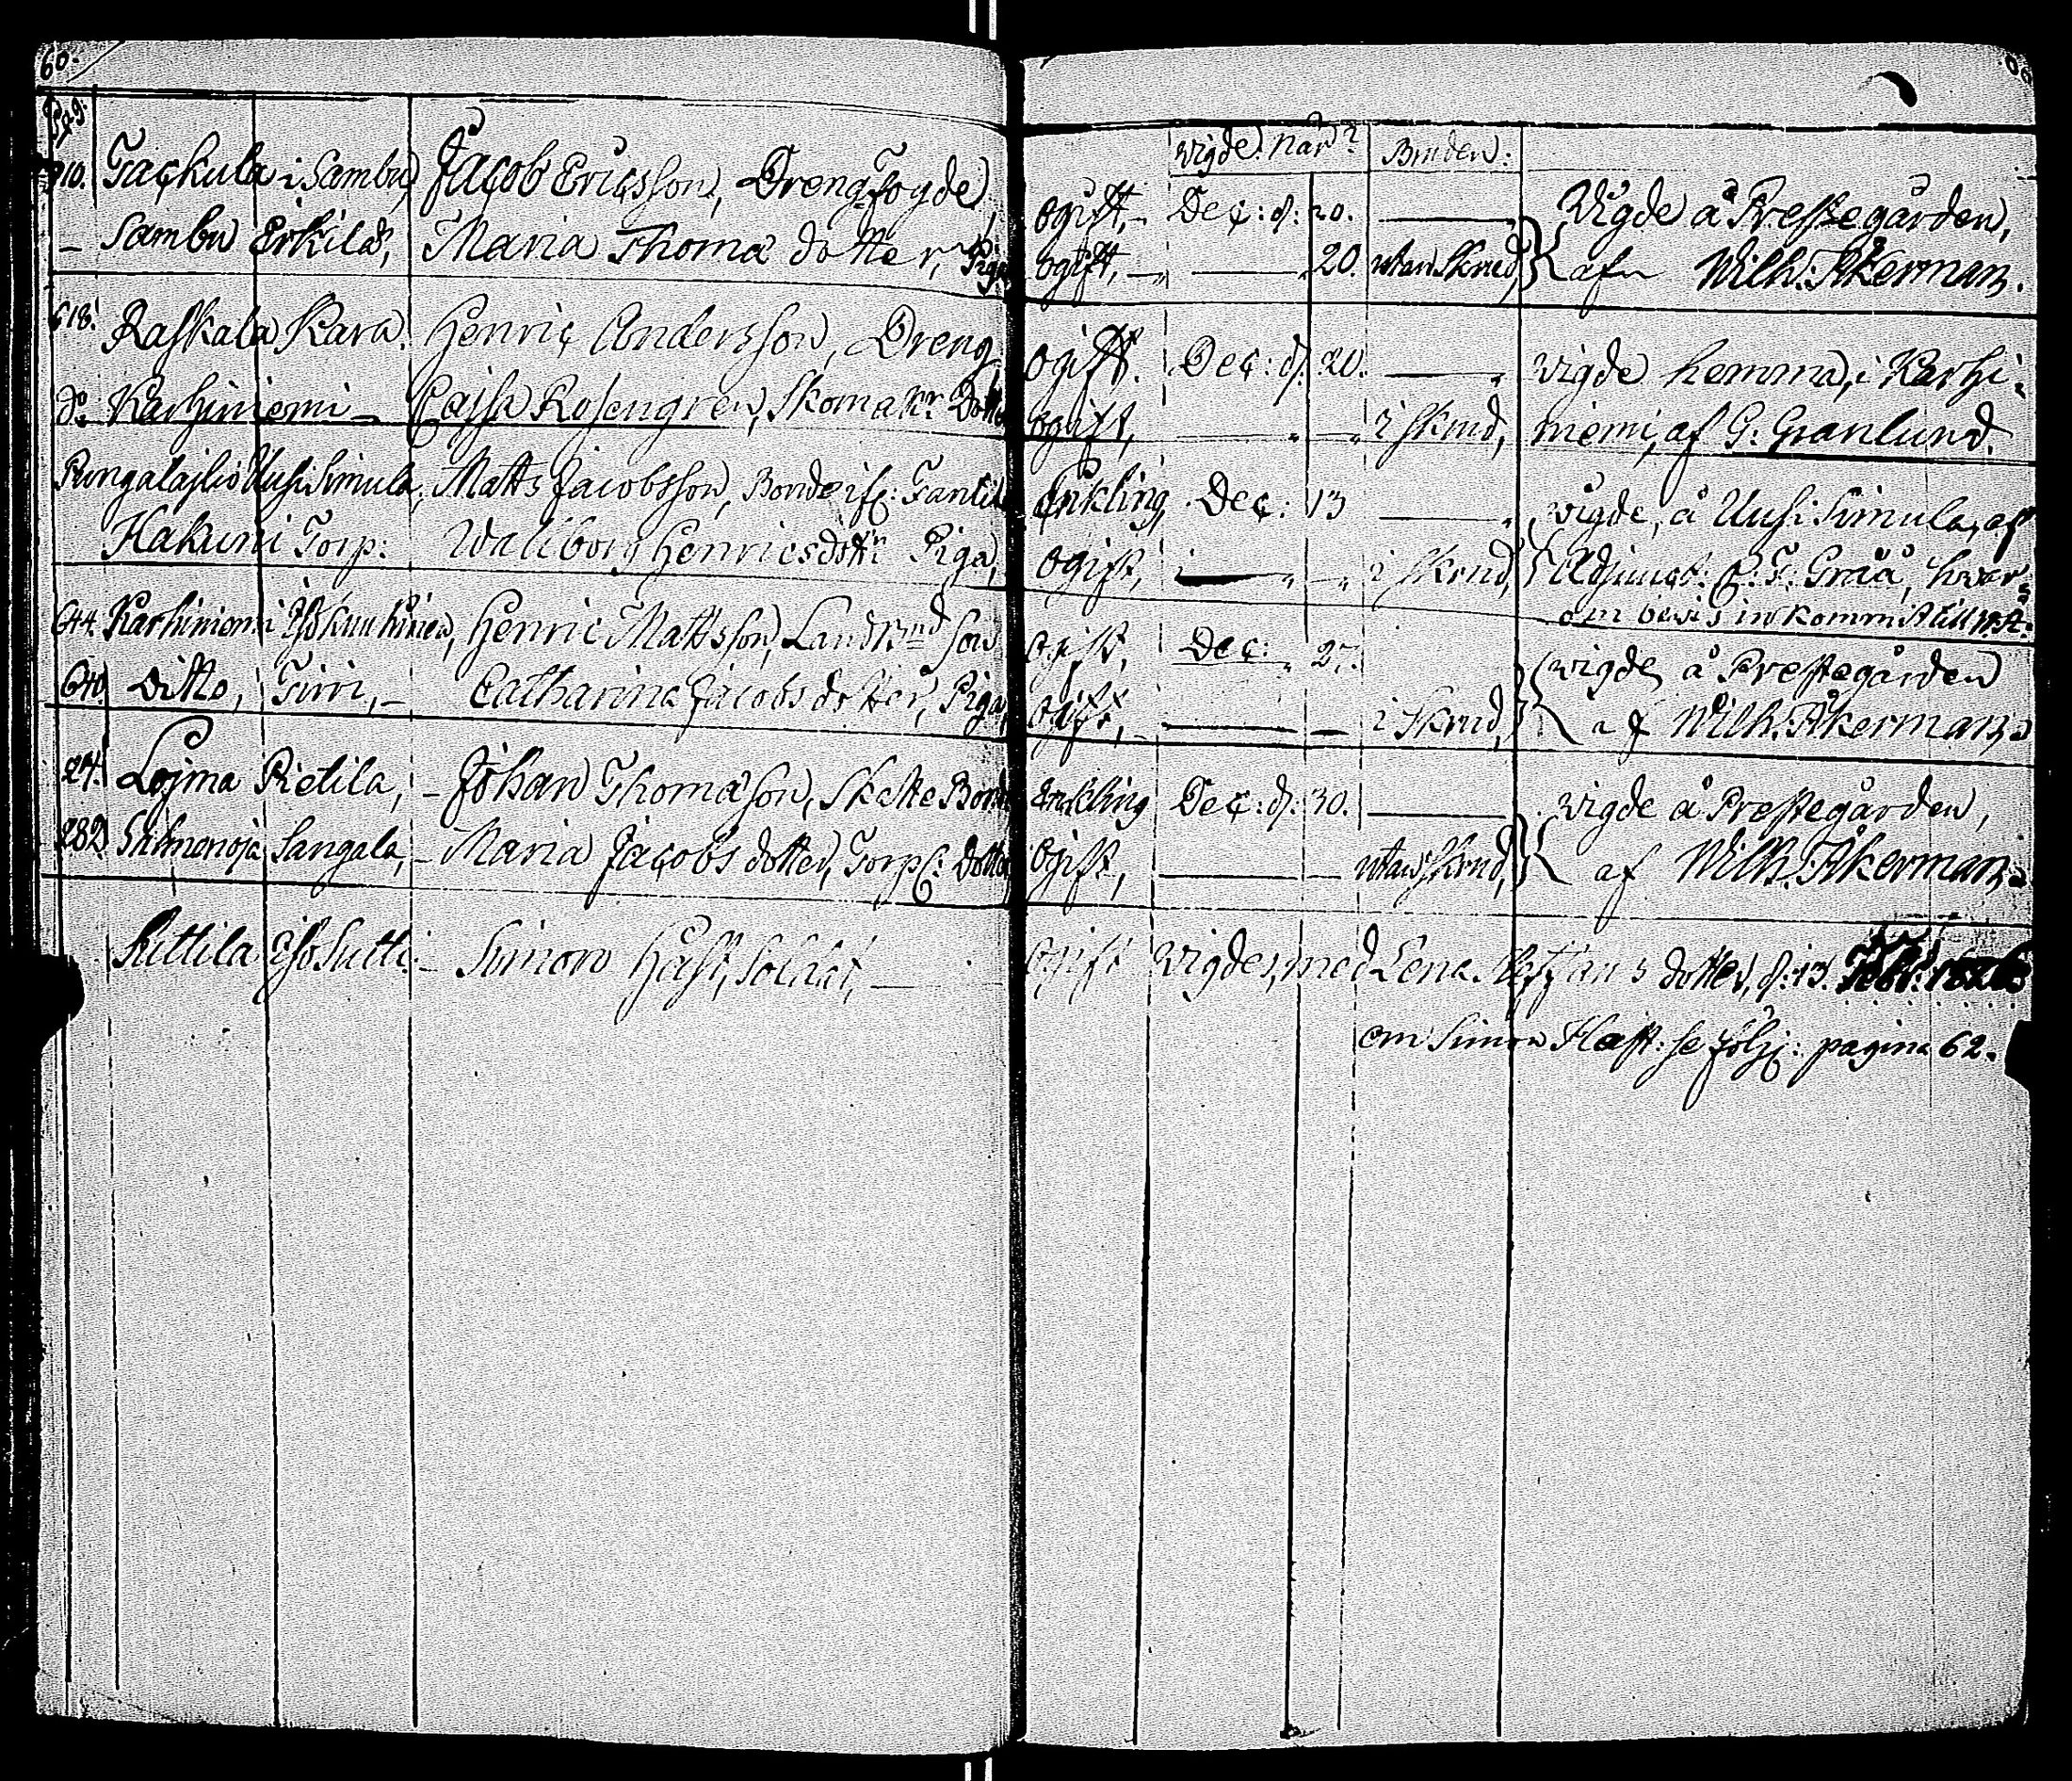 60.
Pag:
Wigde. När? Bruden:
910. Tackula i Sambu, Jacob Ericsson, Dreng-Fogde, ogift, Dec: d: 20. Wigde å Prestegården,
Sambu Erkilä, Maria Thomædotter, Piga ogift, 20. utan Skrud, af Wilh: Åkerman.
618. Raskala Kara. Henric Andersson, Dreng ogift. Dec: d. 20. wigde hemma, i Karhi-
do Karhiniemi Cajsa Rosengren, Skomakr Dotter ogift, i skrud, niemi, af G: Granlund.
Pungalajtio Uusi Simula, Matts Jacobsson, Bonde if: Enkling, Dec: 13 wigde, å Uusi Simula, af
Hakumi Torp: Walborg Henricsdottr Piga, ogift, i skrud, Adjunct: Gråå, hvar-
om bewis inkommit till
644. Karhiniemi Henric Mattsson, Landbnd Son ogift, Dec: 27. wigde å Prestegården
640 Ditto, Tirri, Catharina Jacobsdotter, Piga, ogift, i Skrud, af Wilh: Åkerman
24. Lojma Pietila, Johan Thomæson, Skatte Bonde Enkling Dec: d: 30. wigde å Prestegården,
282 Suttila Sangala, Maria Jacobsdotter, Torp: Dotter ogift, utan skrud, af Wilh: Åkerman
Suttila Iso Sutti Simon Hast, Soldat, ogift wigdes, med Lena dotter, d: 13. Febr:
om Simon Hast: se följ: pagina 62.